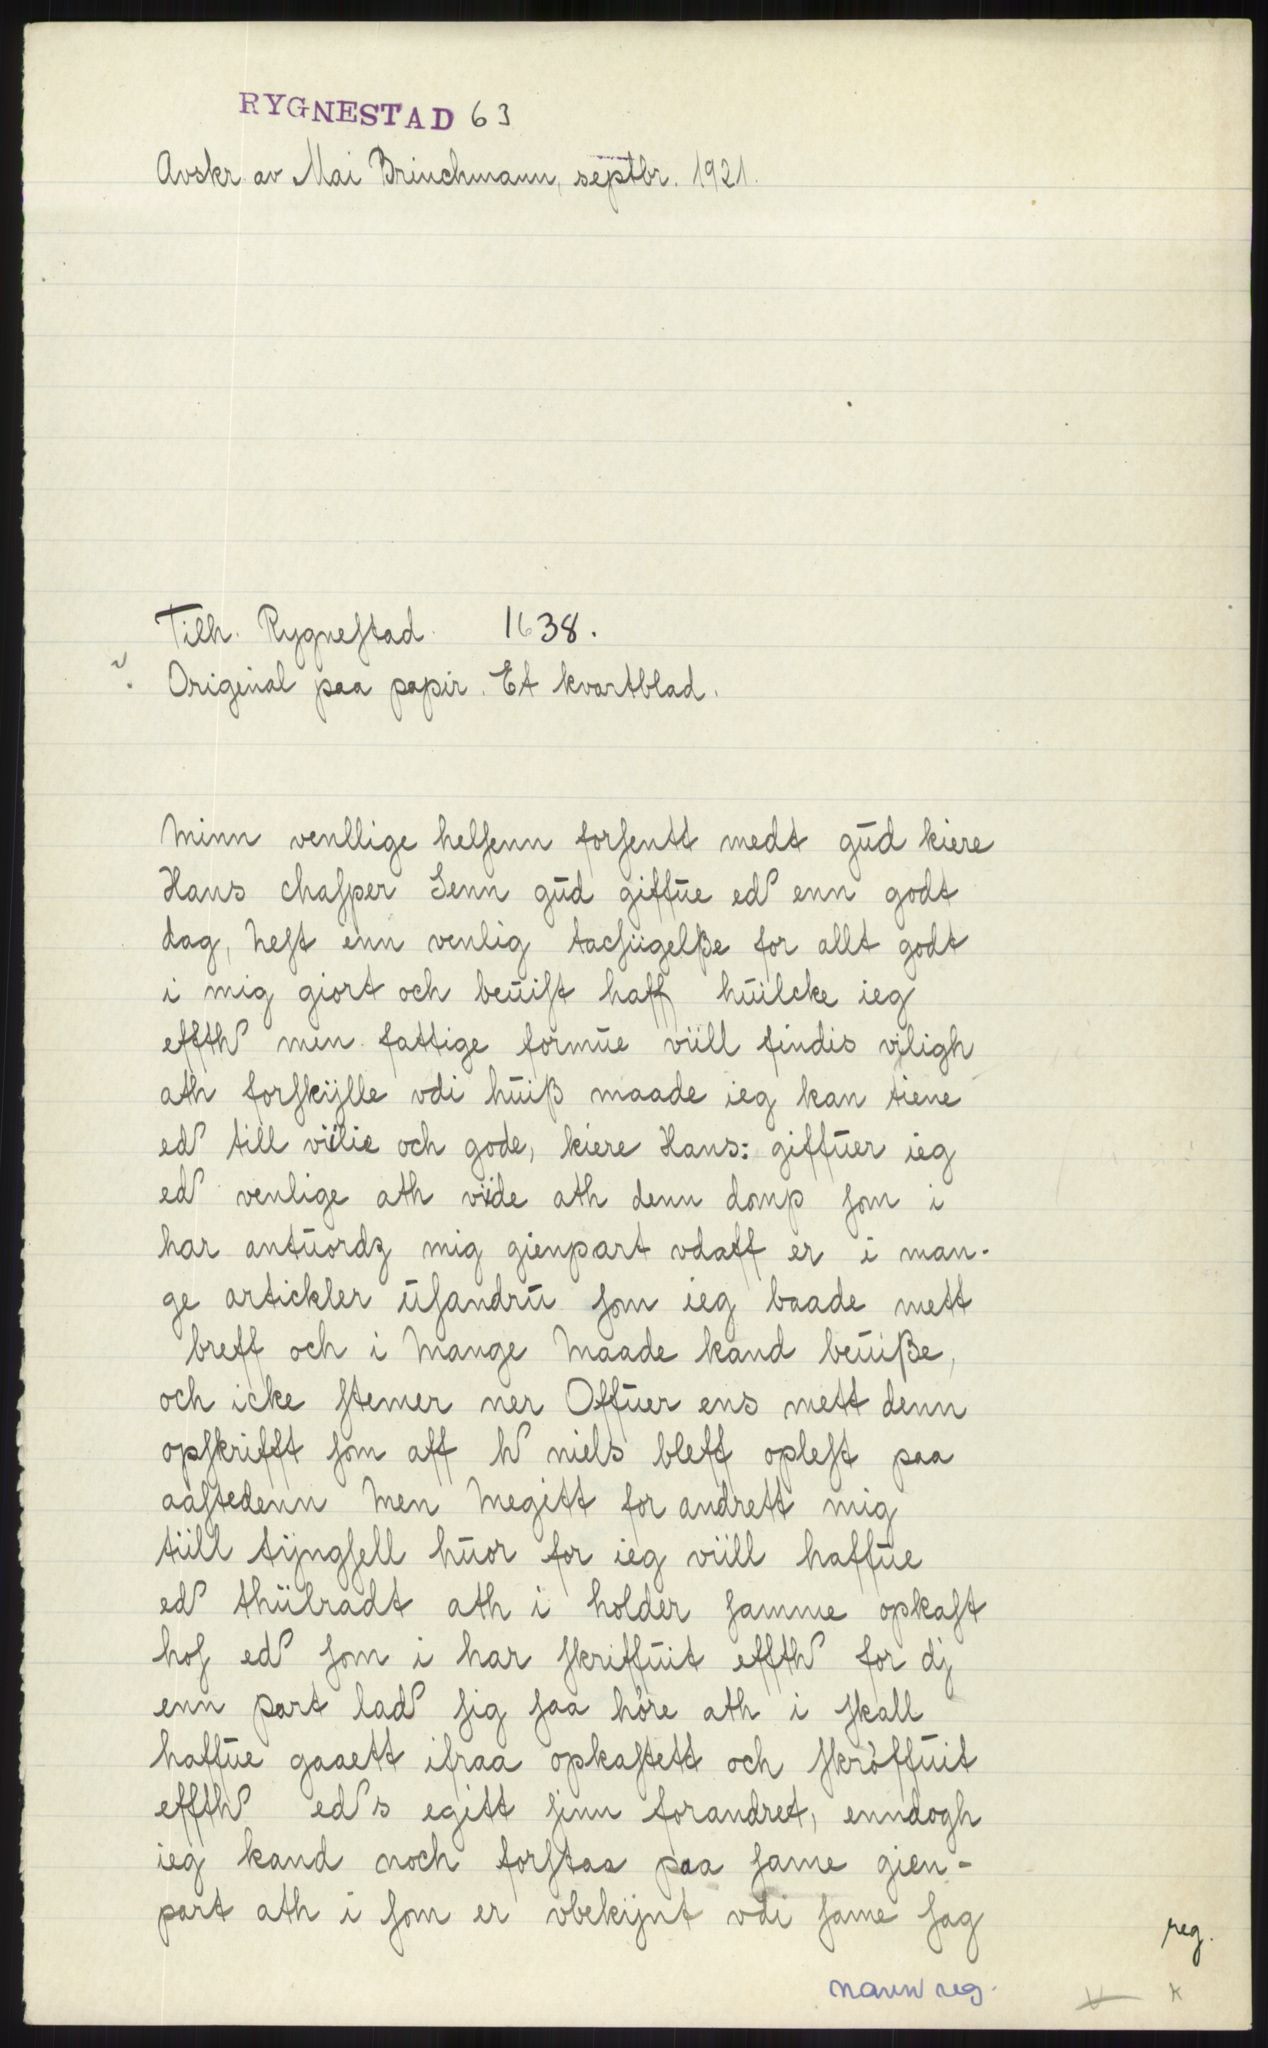 RYGNESTAD 63
Avskr. av Mai Brinchmann, septbr. 1921.
Tilh. Rygneſtad. 1638.
Original paa papir. Et kvartblad.
Minn venllige helſenn forſentt medt gūd kiere
Hans chaſper Senn gūd giffūe ed enn godt
dag, neſt enn venlig tacſiigelße for allt godt
i mig giort och beūiſt haff hūilcke ieg
effth men fattige formūe viill findis viligh
ath forſkÿlle vdi hūiß maade ieg kan tiene
ed till viilie och gode, kiere Hans: giffūer ieg
ed venlige ath viide ath denn domp ſom i
har antūordz mig gienpart vdaff er i man-
ge artickler ūſandrū ſom ieg baade mett
breff och i Mange Maade kand beūiße,
och icke ſtemer ner Offūer ens mett denn
opſkrifft ſom aff h niels bleff opleſt paa
aaſtedenn Men Megitt for andrett mig
tiill tÿngſell hūor for ieg viill haffūe
ed thiilradt ath i holder ſamme opkaſt
hoſ ed ſom i har ſkriffūit effth for dj
enn part lad ſig ſaa höre ath i ſkall
haffūe gaaett ifraa opkaſtett och ſkröffūit
effth eds egitt ſinn forandret, enndogh
ieg kand noch forſtaa paa ſame gien-
part ath i ſom er vbekÿnt vdi ſame ſag
reg.
navn reg.